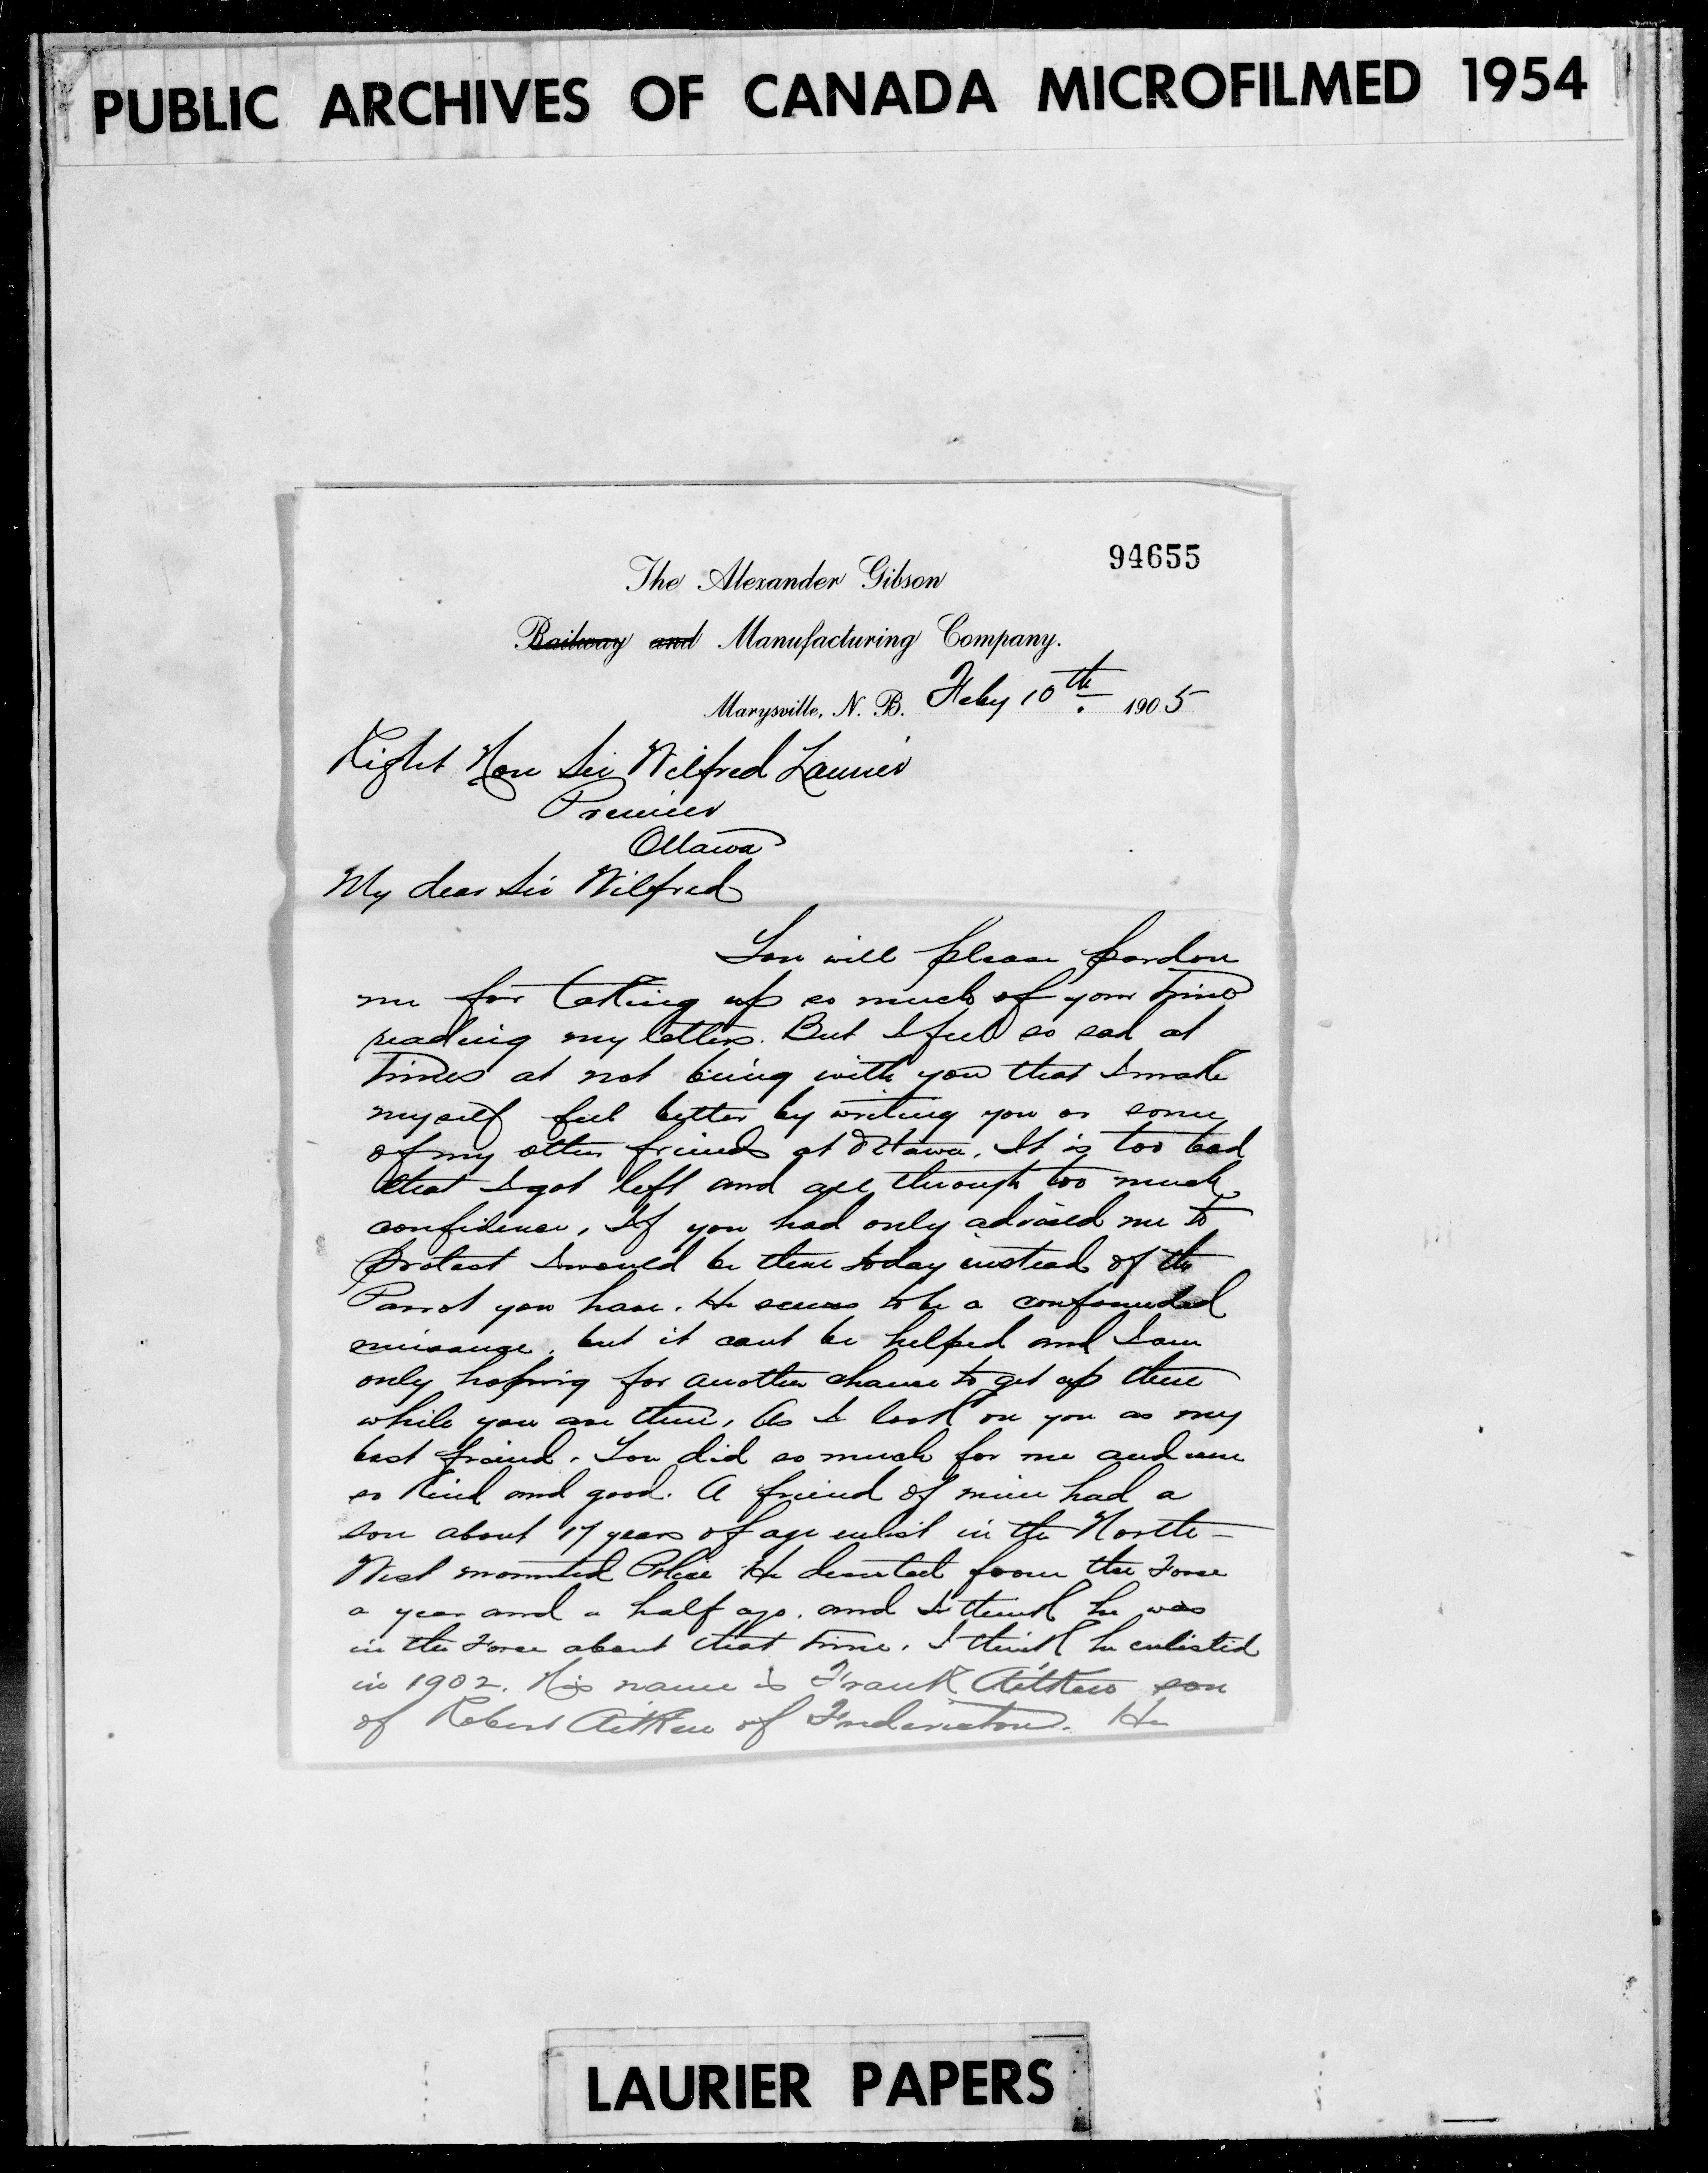 PUBLIC ARCHIVES OF CANADA MICROFILMED 1954
94655
The Alexander Gibson
Railway and Manufacturing Company.
Marysville, N. B. Feby 10th. 1905
Right Hon Sir Wilfred Laurier
Premier
Ottawa
My dear Sir Wilfred
You will please pardon
me for taking up so much of your time
reading my letters. But I feel so sad at
times at not being with you that I make
myself feel better by writing you or some
of my other friends at Ottawa. It is too bad
that I got left and all through too much
confidence, If you had only advised me to
protest I would be there today instead of the
Parrot you have. He seems to be a confounded
nuisance. but it cant be helped and I am
only hoping for another chance to get up there
while you are there, As I look on you as my
best friend. You did so much for me and were
so kind and good. A friend of mine had a
son about 17 years of age enlist in the North-
West mounted Police He deserted from the Force
a year and a half ago. and I think he was
in the Force about that time. I think he enlisted
in 1902. His name is Frank Aitken son
of Robert Aitken of Fredericton. He
LAURIER PAPERS